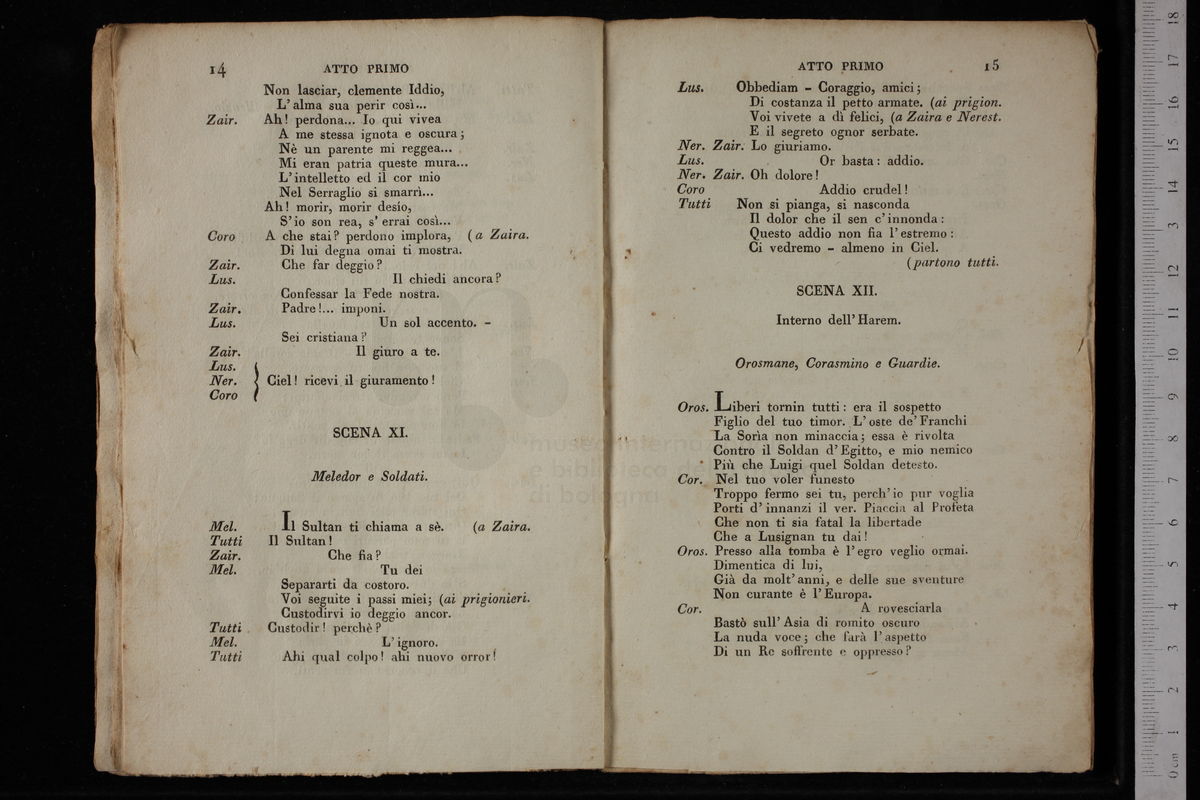 14 ATTO PRIMO
Non lasciar, clemente Iddio,
L'alma sua perir così...
Zair. Ah! perdona... Io qui vivea
A me stessa ignota e oscura;
Nè un parente mi reggea...
Mi eran patria queste mura...
L'intelletto ed il cor mio
Nel Serraglio si smarrì...
Ah! morir, morir desio,
S'io son rea, s'errai così...
Coro A che stai? perdono implora, (a Zaira.
Di lui degna omai ti mostra.
Zair. Che far deggio?
Lus. Il chiedi ancora?
Confessar la Fede nostra.
Zair. Padre!... imponi.
Lus. Un sol accento. -
Sei cristiana?
Zair. Il giuro a te.
Lus.
Ner. Ciel! ricevi il giuramento!
Coro
SCENA XI.
Meledor e Soldati.
Mel. Il Sultan ti chiama a sè. (a Zaira.
Tutti Il Sultan!
Zair. Che fia?
Mel. Tu dei
Separarti da costoro.
Voi seguite i passi miei; (ai prigionieri.
Custodirvi io deggio ancor.
Tutti Custodir! perchè?
Mel. L'ignoro.
Tutti Ahi qual colpo! ahi nuovo orror!
ATTO PRIMO 15
Lus. Obbediam - Coraggio, amici;
Di costanza il petto armate. (ai prigion.
Voi vivete a dì felici, (a Zaira e Nerest.
E il segreto ognor serbate.
Ner. Zair. Lo giuriamo.
Lus. Or basta: addio.
Ner. Zair. Oh dolore!
Coro Addio crudel!
Tutti Non si pianga, si nasconda
Il dolor che il sen c'innonda:
Questo addio non fia l'estremo:
Ci vedremo - almeno in Ciel.
(partono tutti.
SCENA XII.
Interno dell'Harem.
Orosmane, Corasmino e Guardie.
Oros. Liberi tornin tutti: era il sospetto
Figlio del tuo timor. L'oste de'Franchi
La Sorìa non minaccia; essa è rivolta
Contro il Soldan d'Egitto, e mio nemico
Più che Luigi quel Soldan detesto.
Cor. Nel tuo voler funesto
Troppo fermo sei tu, perch'io pur voglia
Porti d'innanzi il ver. Piaccia al Profeta
Che non ti sia fatal la libertade
Che a Lusignan tu dai!
Oros. Presso alla tomba è l'egro veglio ormai.
Dimentica di lui,
Già da molt'anni, e delle sue sventure
Non curante è l'Europa.
Cor. A rovesciarla
Bastò sull'Asia di romito oscuro
La nuda voce; che farà l'aspetto
Di un Re soffrente e oppresso?
museo interna
e biblioteca de
di bologna
0 cm 1 2 3 4 5 6 7 8 9 10 11 12 13 14 15 16 17 18